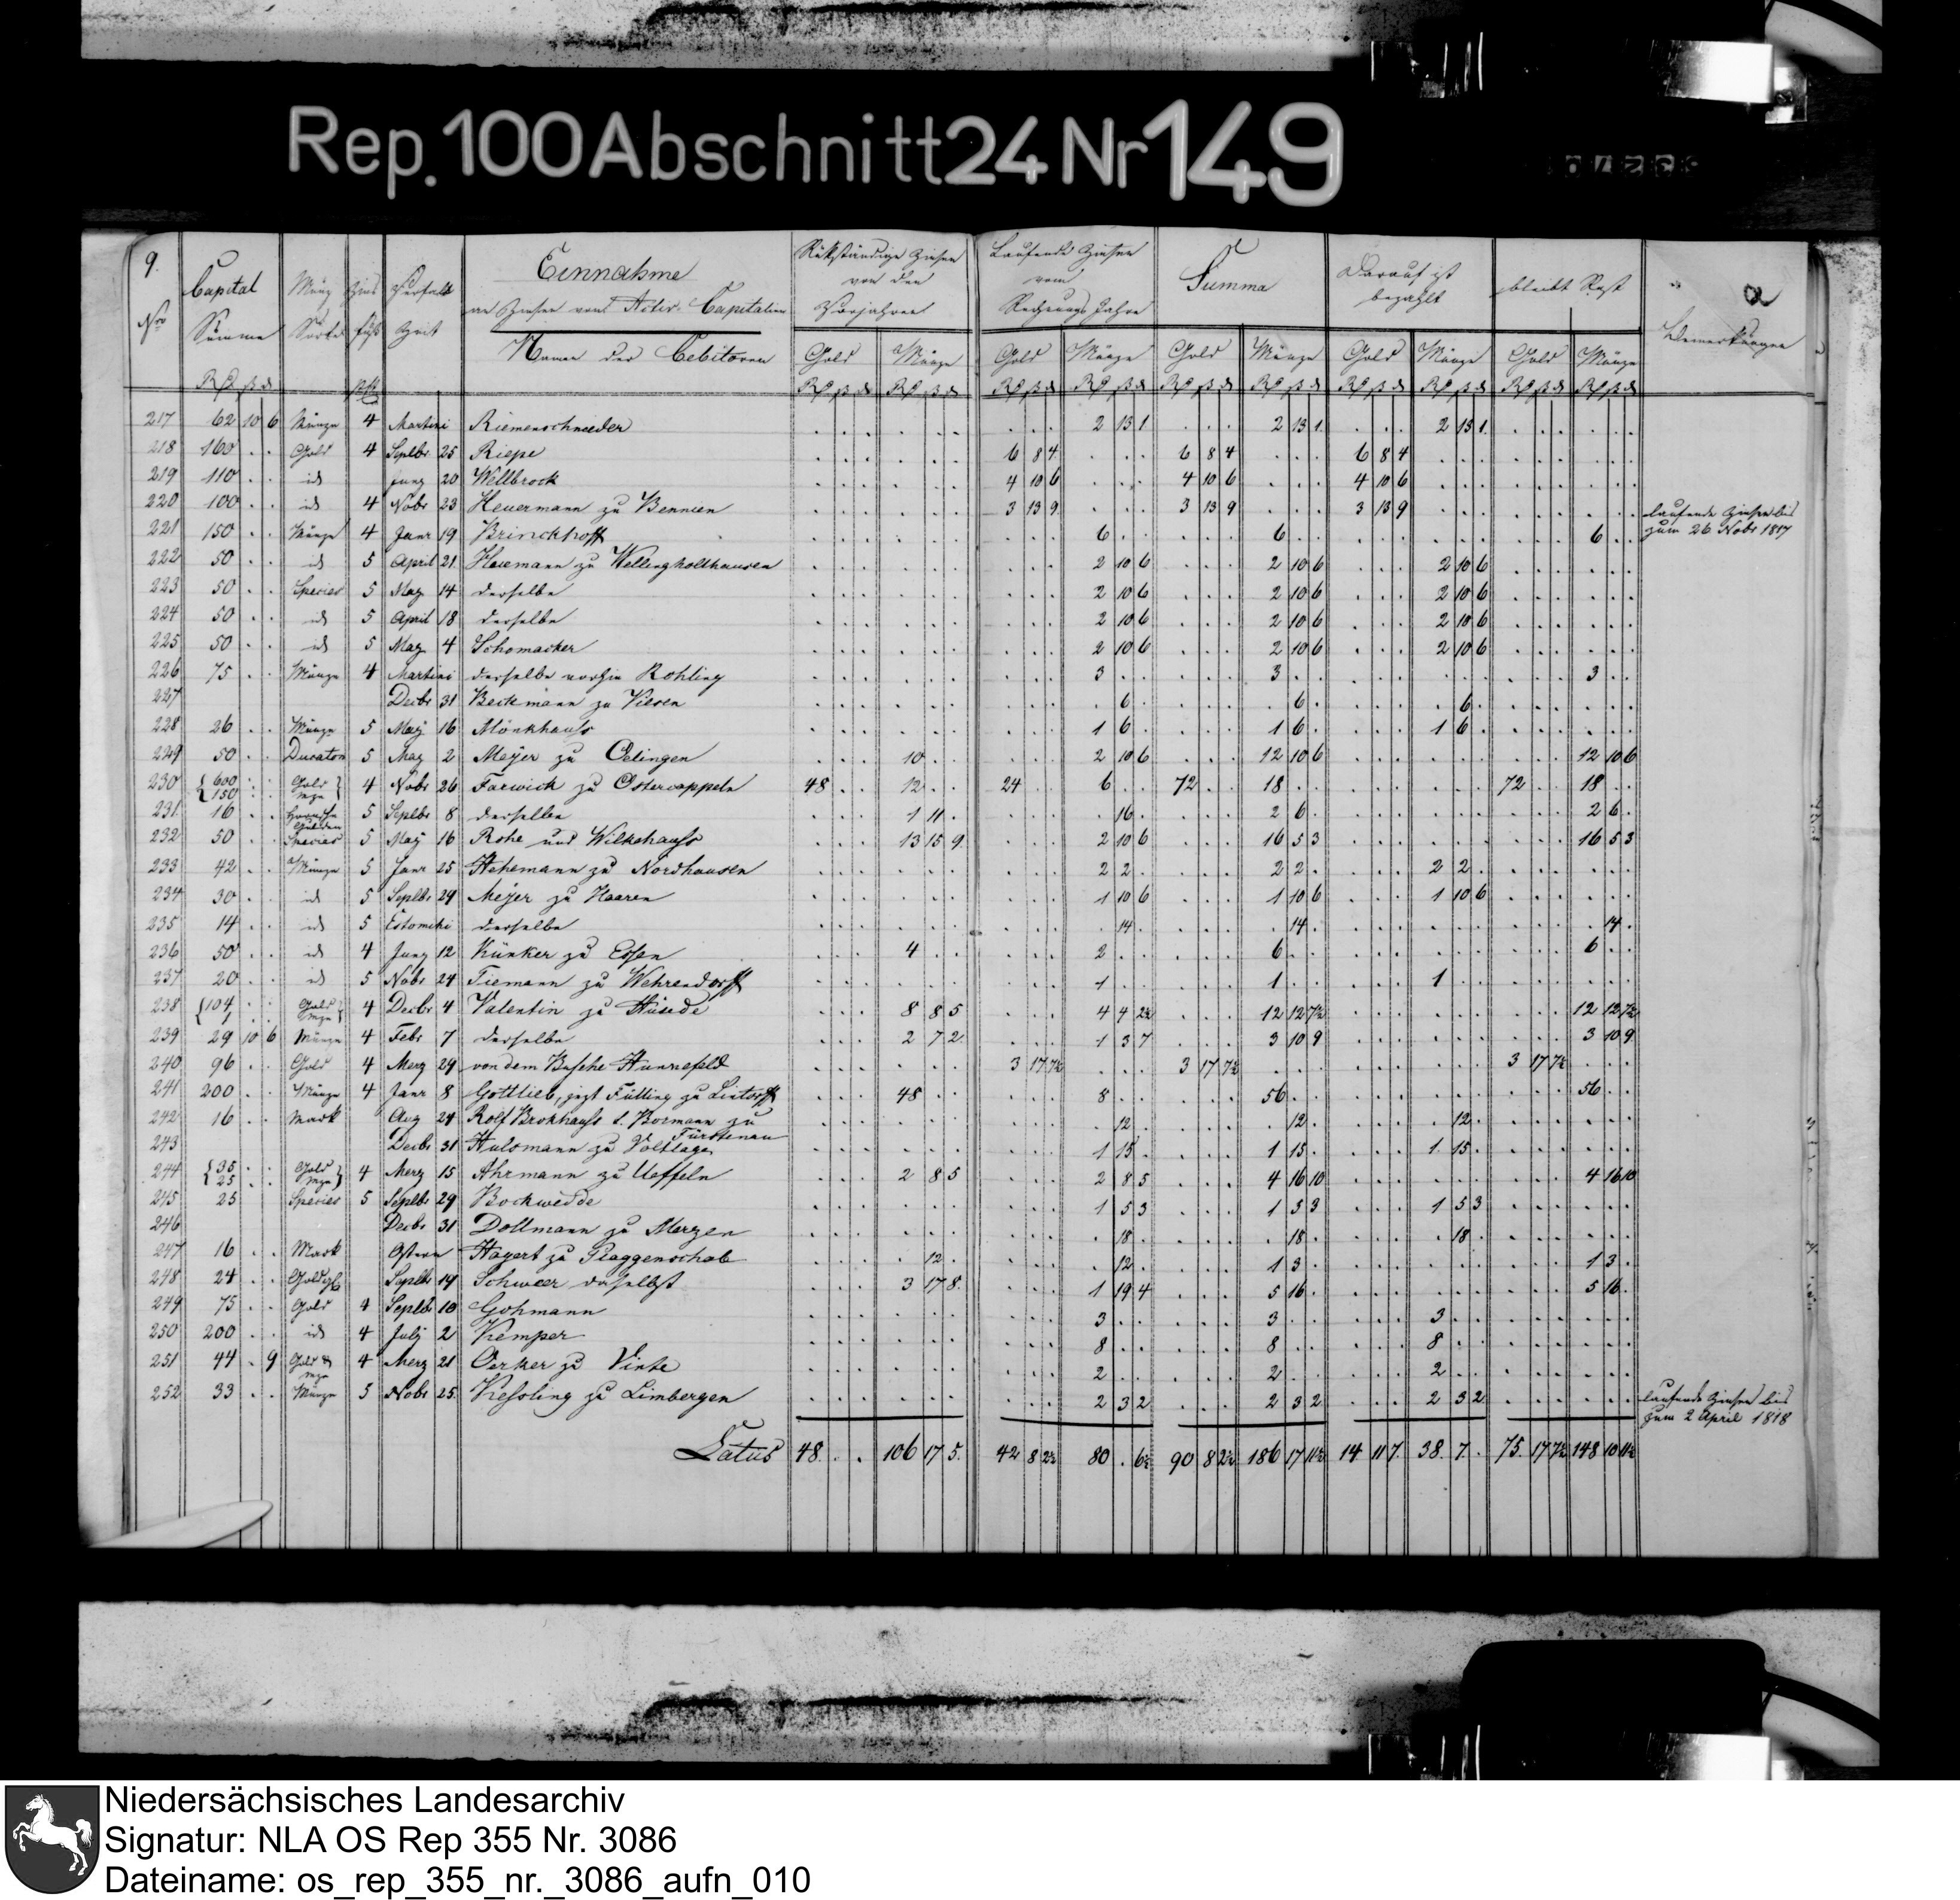 Rep. 100 Abschnitt 24 Nr 149
9. Capital Münz Zins Verfall Einnahme Rükständige Zinsen Laufende Zinsen Summa Darauf ist bleibt Rest
No Summe Sorte fuß Zeit an Zinsen von Activ-Capitalien von den Vorjahren vom Rechnungs Jahre bezahlt Bemerkungen
Namen der Debitoren Gold Münze Gold Münze Gold Münze Gold Münze Gold Münze
217 62 10 6 Münze 4 Martini Riemenschneider 2 13 1 2 13 1 2 13 1
218 160 Gold 4 Septbr 25 Riepe 6 8 4 6 8 4 6 8 4
219 110 id Juny 20 Wellbrock 4 10 6 4 10 6 4 10 6
220 100 id 4 Nobr 23 Heuermann zu Bennien 3 13 9 3 13 9 3 13 9 laufende Zinsen bis
221 150 Münze 4 Janr 19 Brinckhoff 6 6 6 zum 26 Nobr 1817
222 50 id 5 April 21 Hasemann zu Wellingholthausen 2 10 6 2 10 6 2 10 6
223 50 Species 5 May 14 derselbe 2 10 6 2 10 6 2 10 6
224 50 id 5 April 18 derselbe 2 10 6 2 10 6 2 10 6
225 50 id 5 May 4 Schomacker 2 10 6 2 10 6 2 10 6
226 75 Münze 4 Martini derselbe vorhin Rohling 3 3 3
227 Decbr 31 Beckmann zu Viesen 6 6 6
228 26 Münze 5 May 16 Mönkhauß 1 6 1 6 1 6
229 50 Ducaton 5 May 2 Meÿer zu Oelingen 10 2 10 6 12 10 6 12 10 6
230 { 600 150 Gold Mze } 4 Nobr 26 Farwick zu Ostercappeln 48 12 24 6 72 18 72 18
231 16 Gulden 5 Septbr 8 derselbe 1 11 16 2 6 2 6
232 50 Species 5 May 16 Rohe und Wilkehauß 13 15 9 2 10 6 16 5 3 16 5 3
233 42 Münze 5 Janr 25 Hehemann zu Nordhausen 2 2 2 2 2 2
234 30 id 5 Septbr 29 Meÿer zu Haaren 1 10 6 1 10 6 1 10 6
235 14 id 5 Estomihi derselbe 14 14 14
236 50 id 4 Juny 12 Künker zu Essen 4 2 6 6
237 20 id 5 Nobr 24 Tiemann zu Wehrendorff 1 1 1
238 { 104 1 Gold Mze } 4 Decbr 4 Valentin zu Hüsede 8 8 5 4 4 2½ 12 12 7½ 12 12 7½
239 29 10 6 Münze 4 Febr 7 derselbe 2 7 2 1 3 7 3 10 9 3 10 9
240 96 Gold 4 Merz 29 von dem Busche Hunnefeld 3 17 7½ 3 17 7½ 3 17 7½
241 200 Münze 4 Janr 8 Gottlieb, jezt Fülling zu Lintorff 48 8 56 56
242 16 Mark Aug 24 Rolf Brokhauß s. Bormann zu Fürstenau 12 12 12
243 Decbr 31 Hulsmann zu Voltlage 1 15 1 15 1 15
244 { 35 25 Gold Mze } 4 Merz 15 Ahrmann zu Ueffeln 2 8 5 2 8 5 4 16 10 4 16 10
245 25 Species 5 Septbr 29 Bockwedde 1 5 3 1 5 3 1 5 3
246 Decbr 31 Dollmann zu Merzen 18 18 18
247 16 Mark Ostern Hagert zu Plaggenschale 12 12 1 3 1 3
248 24 Goldgl Septbr 14 Schweer daselbst 3 17 8 1 19 4 5 16 5 16
249 75 Gold 4 Septbr 10 Gohmann 3 3 3
250 200 id 4 July 2 Kemper 8 8 8
251 44 9 Gold & Mze 4 Merz 21 Oerker zu Vinte 2 2 2
252 33 Münze 5 Nobr 25 Kessling zu Limbergen 2 3 2 2 3 2 2 3 2 laufende Zinsen bis
zum 2 April 1818
Latus 48 106 17 5 42 8 2½ 80 6½ 90 8 2½ 186 17 11½ 14 11 7 38 7 75 17 7½ 148 10 11½
Niedersächsisches Landesarchiv
Signatur: NLA OS Rep 355 Nr. 3086
Dateiname: os_rep_355_nr._3086_aufn_010